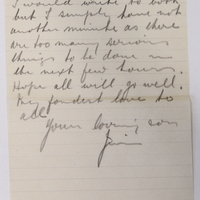 I would write to book
but I simply have not
another minute as there
are too many serious
things to be done in
the next few hours.
Hope all will go well.
My fondest love to
all
Your loving son
Jim